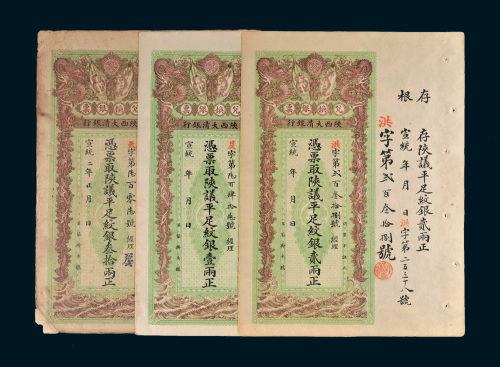 兌換銀票
陝西大清銀行
字第陸百零陸號 經理
憑票取陝議平足紋銀叁拾兩正
宣統二年正月 日
兌換銀票
陝西大清銀行
字第陸百肆拾陸號 經理
憑票取陝議平足紋銀壹兩正
宣統 年 月 日
兌換銀票
陝西大清銀行
洪字第貳百叁拾捌號 經理
憑票取陝議平足紋銀貳兩正
宣統 年 月 日
存根
存陝議平足紋銀貳兩正
宣統 年 月 日洪字第二百三十八號
洪字第貳百叁拾捌號